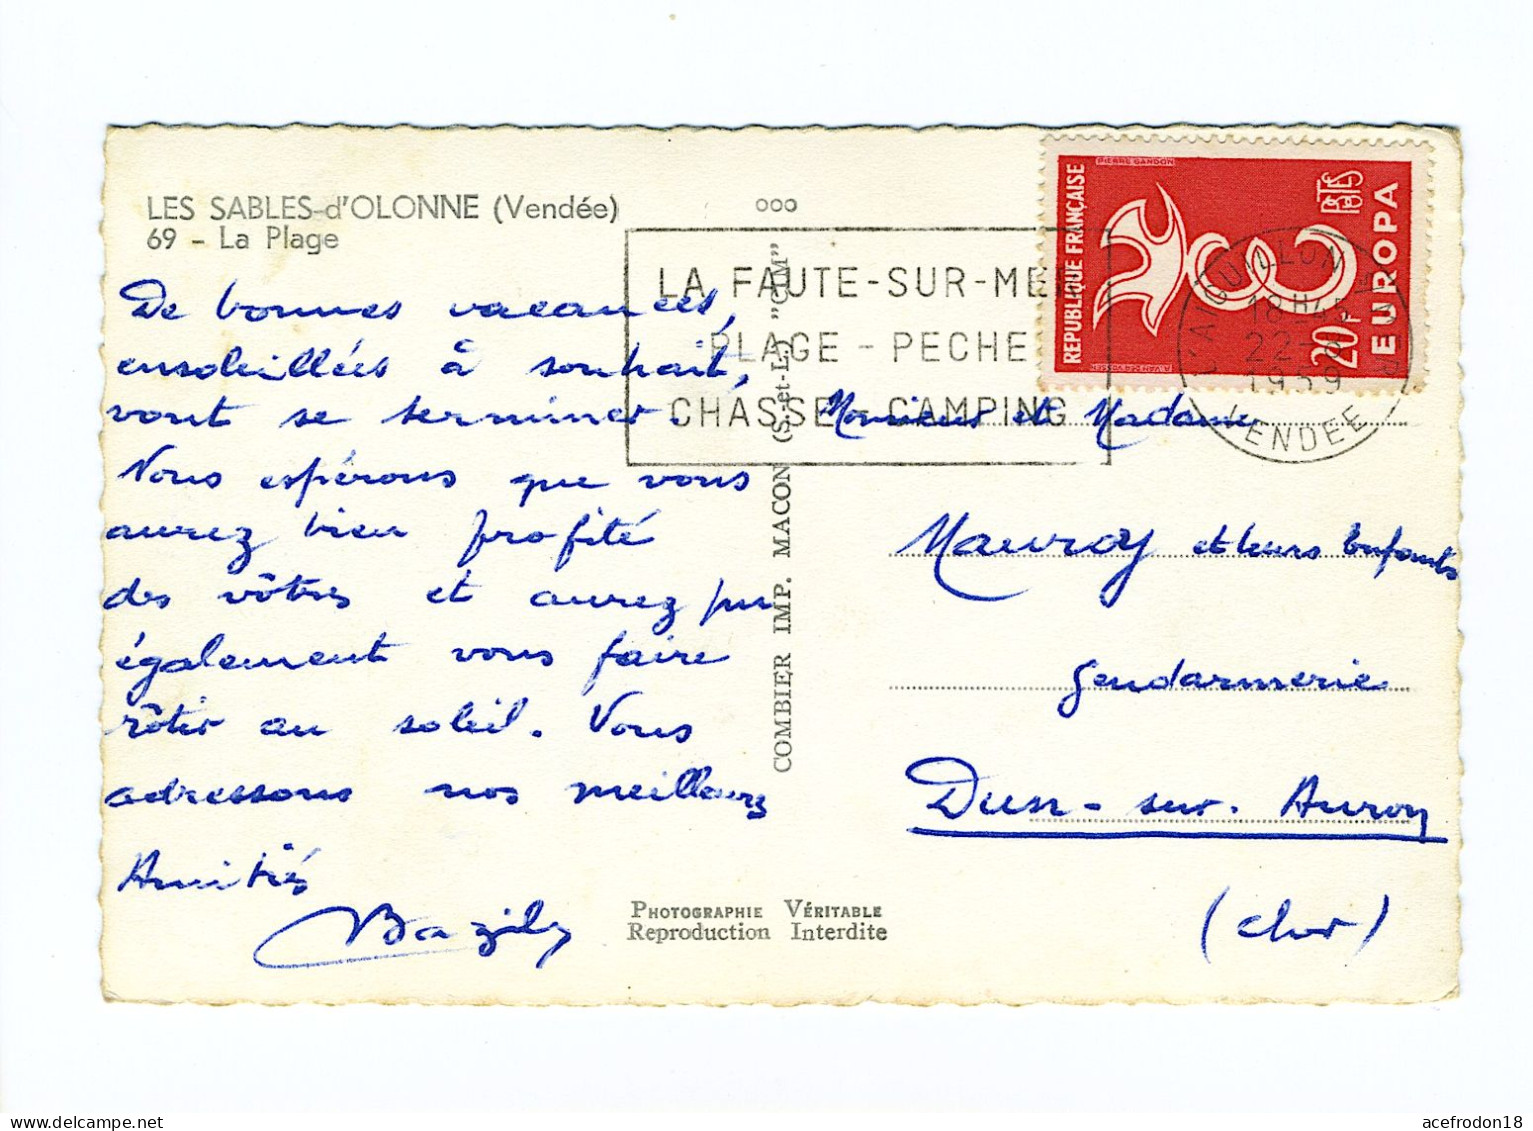 LES SABLES-d'OLONNE (Vendée)
69 - La Plage
De bonnes vacances,
ensoleillées à souhait,
vont se terminer.
Nous espérons que vous
aurez bien profité
des vôtres et aurez pu
également vous faire
rôtir au soleil. Vous
adressons nos meilleures
Amitiés
Bazily
ooo
LA FAUTE-SUR-MER
PLAGE - PECHE
CHASSE - CAMPING
COMBIER IMP. MACON (S.-et-L.) "CIM"
PHOTOGRAPHIE VÉRITABLE
Reproduction Interdite
PIERRE GANDON
REPUBLIQUE FRANÇAISE
POSTES
20F
EUROPA
L'AIGUILLON
18H45
22-8
1959
VENDEE
Monsieur et Madame
Mauroy et leurs Enfants
Gendarmerie
Dun-sur-Auron
(Cher)
acefrodon18